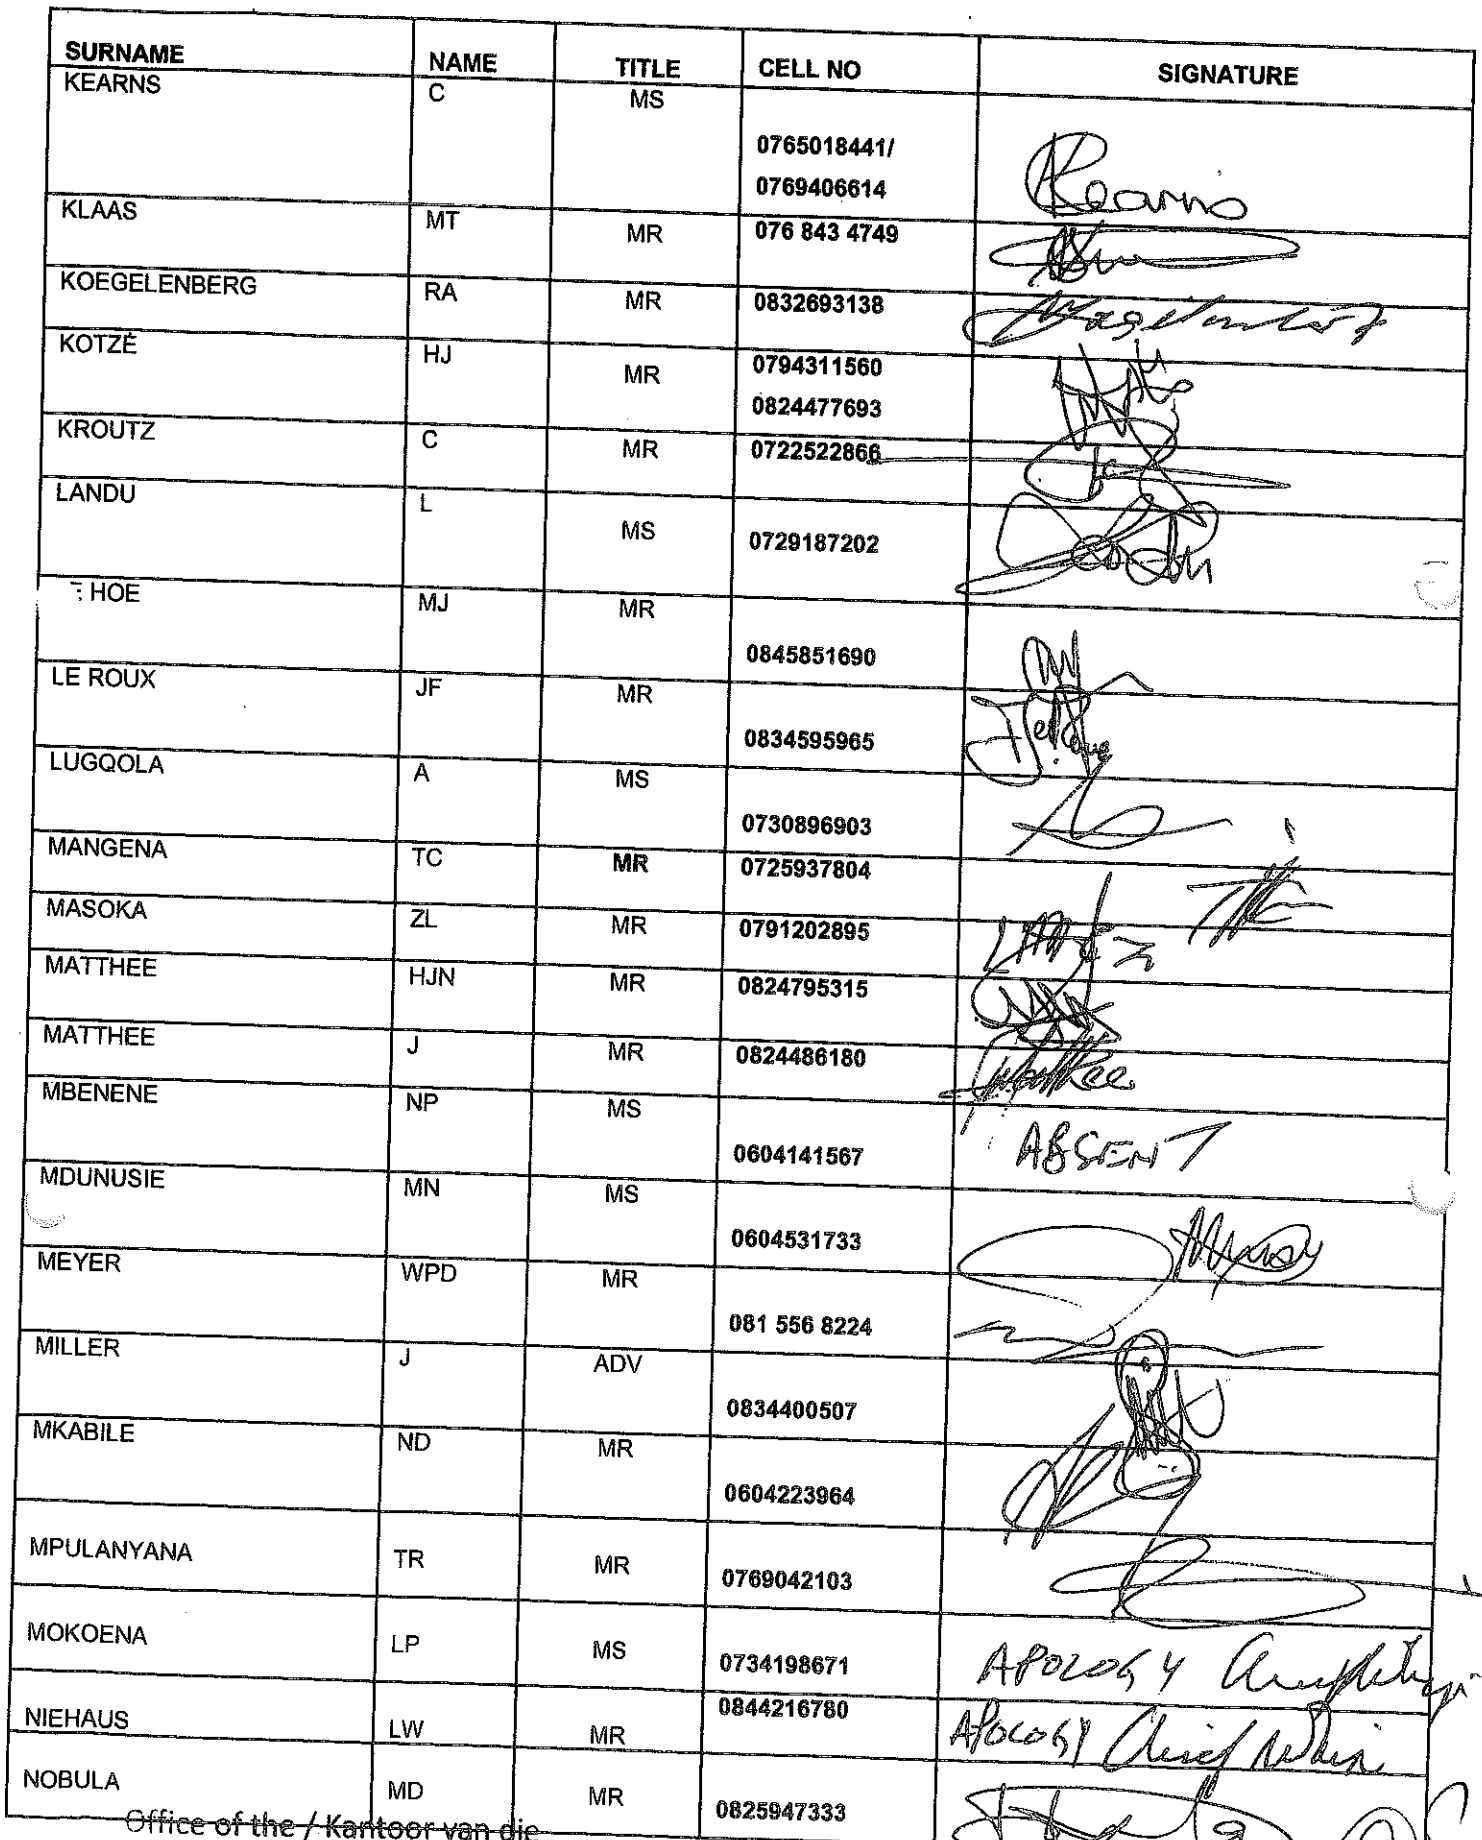 SURNAME NAME TITLE CELL NO SIGNATURE
KEARNS C MS 0765018441/
0769406614 Kearns
KLAAS MT MR 076 843 4749
KOEGELENBERG RA MR 0832693138
KOTZÉ HJ MR 0794311560
0824477693
KROUTZ C MR 0722522866
LANDU L MS 0729187202
HOE MJ MR 0845851690
LE ROUX JF MR 0834595965
LUGQOLA A MS 0730896903
MANGENA TC MR 0725937804
MASOKA ZL MR 0791202895
MATTHEE HJN MR 0824795315
MATTHEE J MR 0824486180
MBENENE NP MS 0604141567 ABSENT
MDUNUSIE MN MS 0604531733
MEYER WPD MR 081 556 8224
MILLER J ADV 0834400507
MKABILE ND MR 0604223964
MPULANYANA TR MR 0769042103
MOKOENA LP MS 0734198671 APOLOGY
NIEHAUS LW MR 0844216780 APOLOGY
NOBULA MD MR 0825947333
Office of the / Kantoor van die